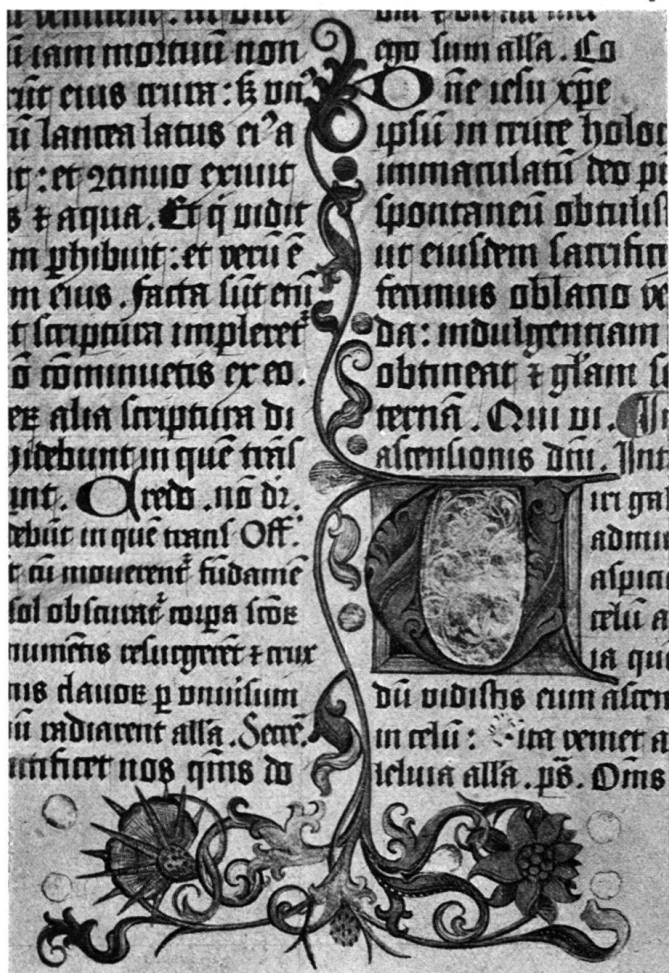 ū iam mortuū non
rūt eius crura : sꝫ vn⁹
ū lancea latus ei⁹ a
it : et ꝯtinuo exiuit
s ⁊ aqua . Et q̄ vidit
m ꝑhibuit : et verū ē
m eius . facta sūt eni
t scriptura impleret᷑
ō cōminuetis ex eo .
eꝝ alia scriptura di
videbunt in quē trās
unt . Credo . nō dr̄ .
debūt in quē transf Off̄ .
t cū mouerent᷑ fūdamē
sol obscurat᷑ corꝑa scōꝝ
numētis resurgerēt ⁊ crux
nis clauoꝝ ꝑ vniuisum
iū radiarent alla . Secre᷑ .
ntificet nos qm̄s do
ego sum alla . Co
Dne iesu xp̄e
ipsū in cruce holo
immaculatū deo p
spontaneū obtulis
ut eiusdem sacrifici
ferimus oblatio ve
da : indulgentiam
obtineat ⁊ gl̄am s
ternā . Qui vi . In
ascensionis dn̄i . Int
Viri ga
admi
aspici
celū a
ia que
dū vidistis eum ascen
in celū : ita veniet a
leluia alla . ps̄ . Om̄s